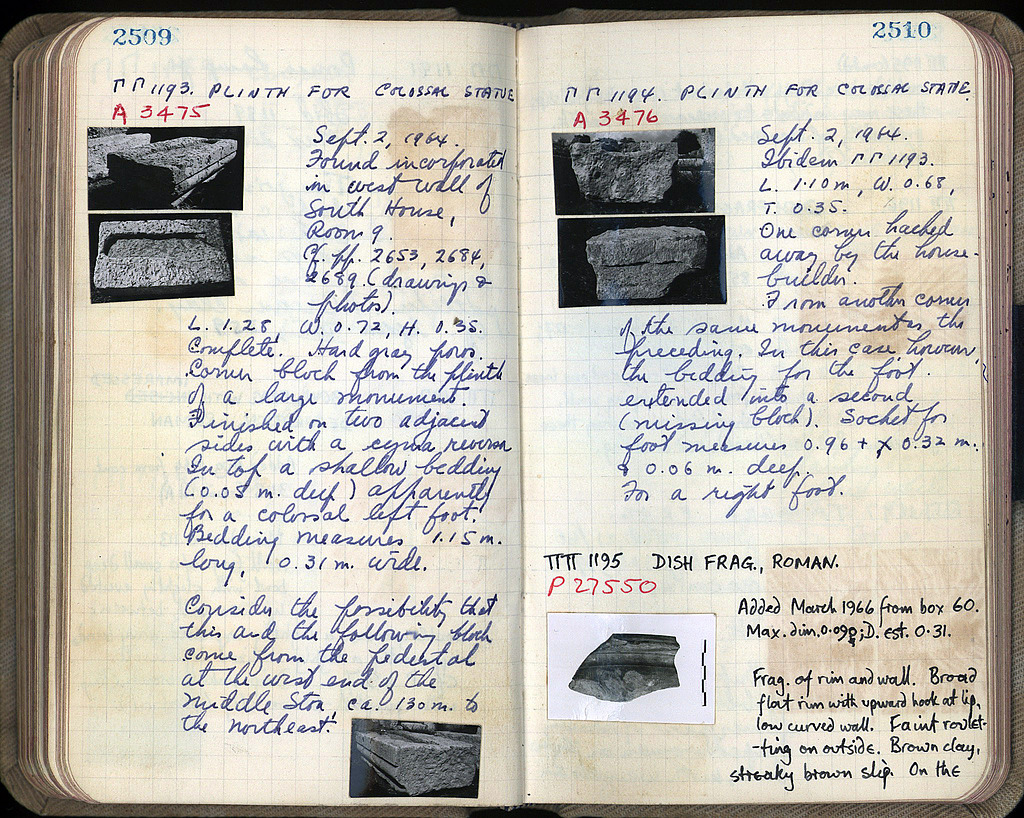 2509
ΠΠ 1193. PLINTH FOR COLOSSAL STATUE
A 3475
Sept. 2, 1964.
Found incorporated
in west wall of
South House,
Room 9.
Cf. pp. 2653, 2684,
2689 (drawings &
photos).
L. 1.28, W. 0.72, H. 0.35.
Complete. Hard gray poros.
Corner block from the plinth
of a large monument.
Finished on two adjacent
sides with a cyma reversa
In top a shallow bedding
(0.05 m. deep) apparently
for a colossal left foot.
Bedding measures 1.15 m.
long, 0.31 m. wide.
Consider the possibility that
this and the following block
come from the pedestal
at the west end of the
Middle Stoa, ca. 130 m. to
the northeast.
2510
ΠΠ 1194. PLINTH FOR COLOSSAL STATUE.
A 3476
Sept. 2, 1964.
Ibidem ΠΠ 1193.
L. 1.10 m, W. 0.68,
T. 0.35.
One corner hacked
away by the house-
builder.
From another corner
of the same monument as the
preceding. In this case, however,
the bedding for the foot
extended into a second
(missing block). Socket for
foot measures 0.96 + x 0.32 m.
& 0.06 m. deep.
For a right foot.
ΠΠ 1195 DISH FRAG., ROMAN.
P 27550
Added March 1966 from box 60.
Max. dim. 0.099; D. est. 0.31.
Frag. of rim and wall. Broad
flat rim with upward hook at lip,
low curved wall. Faint roulet-
-ting on outside. Brown clay,
streaky brown slip. On the